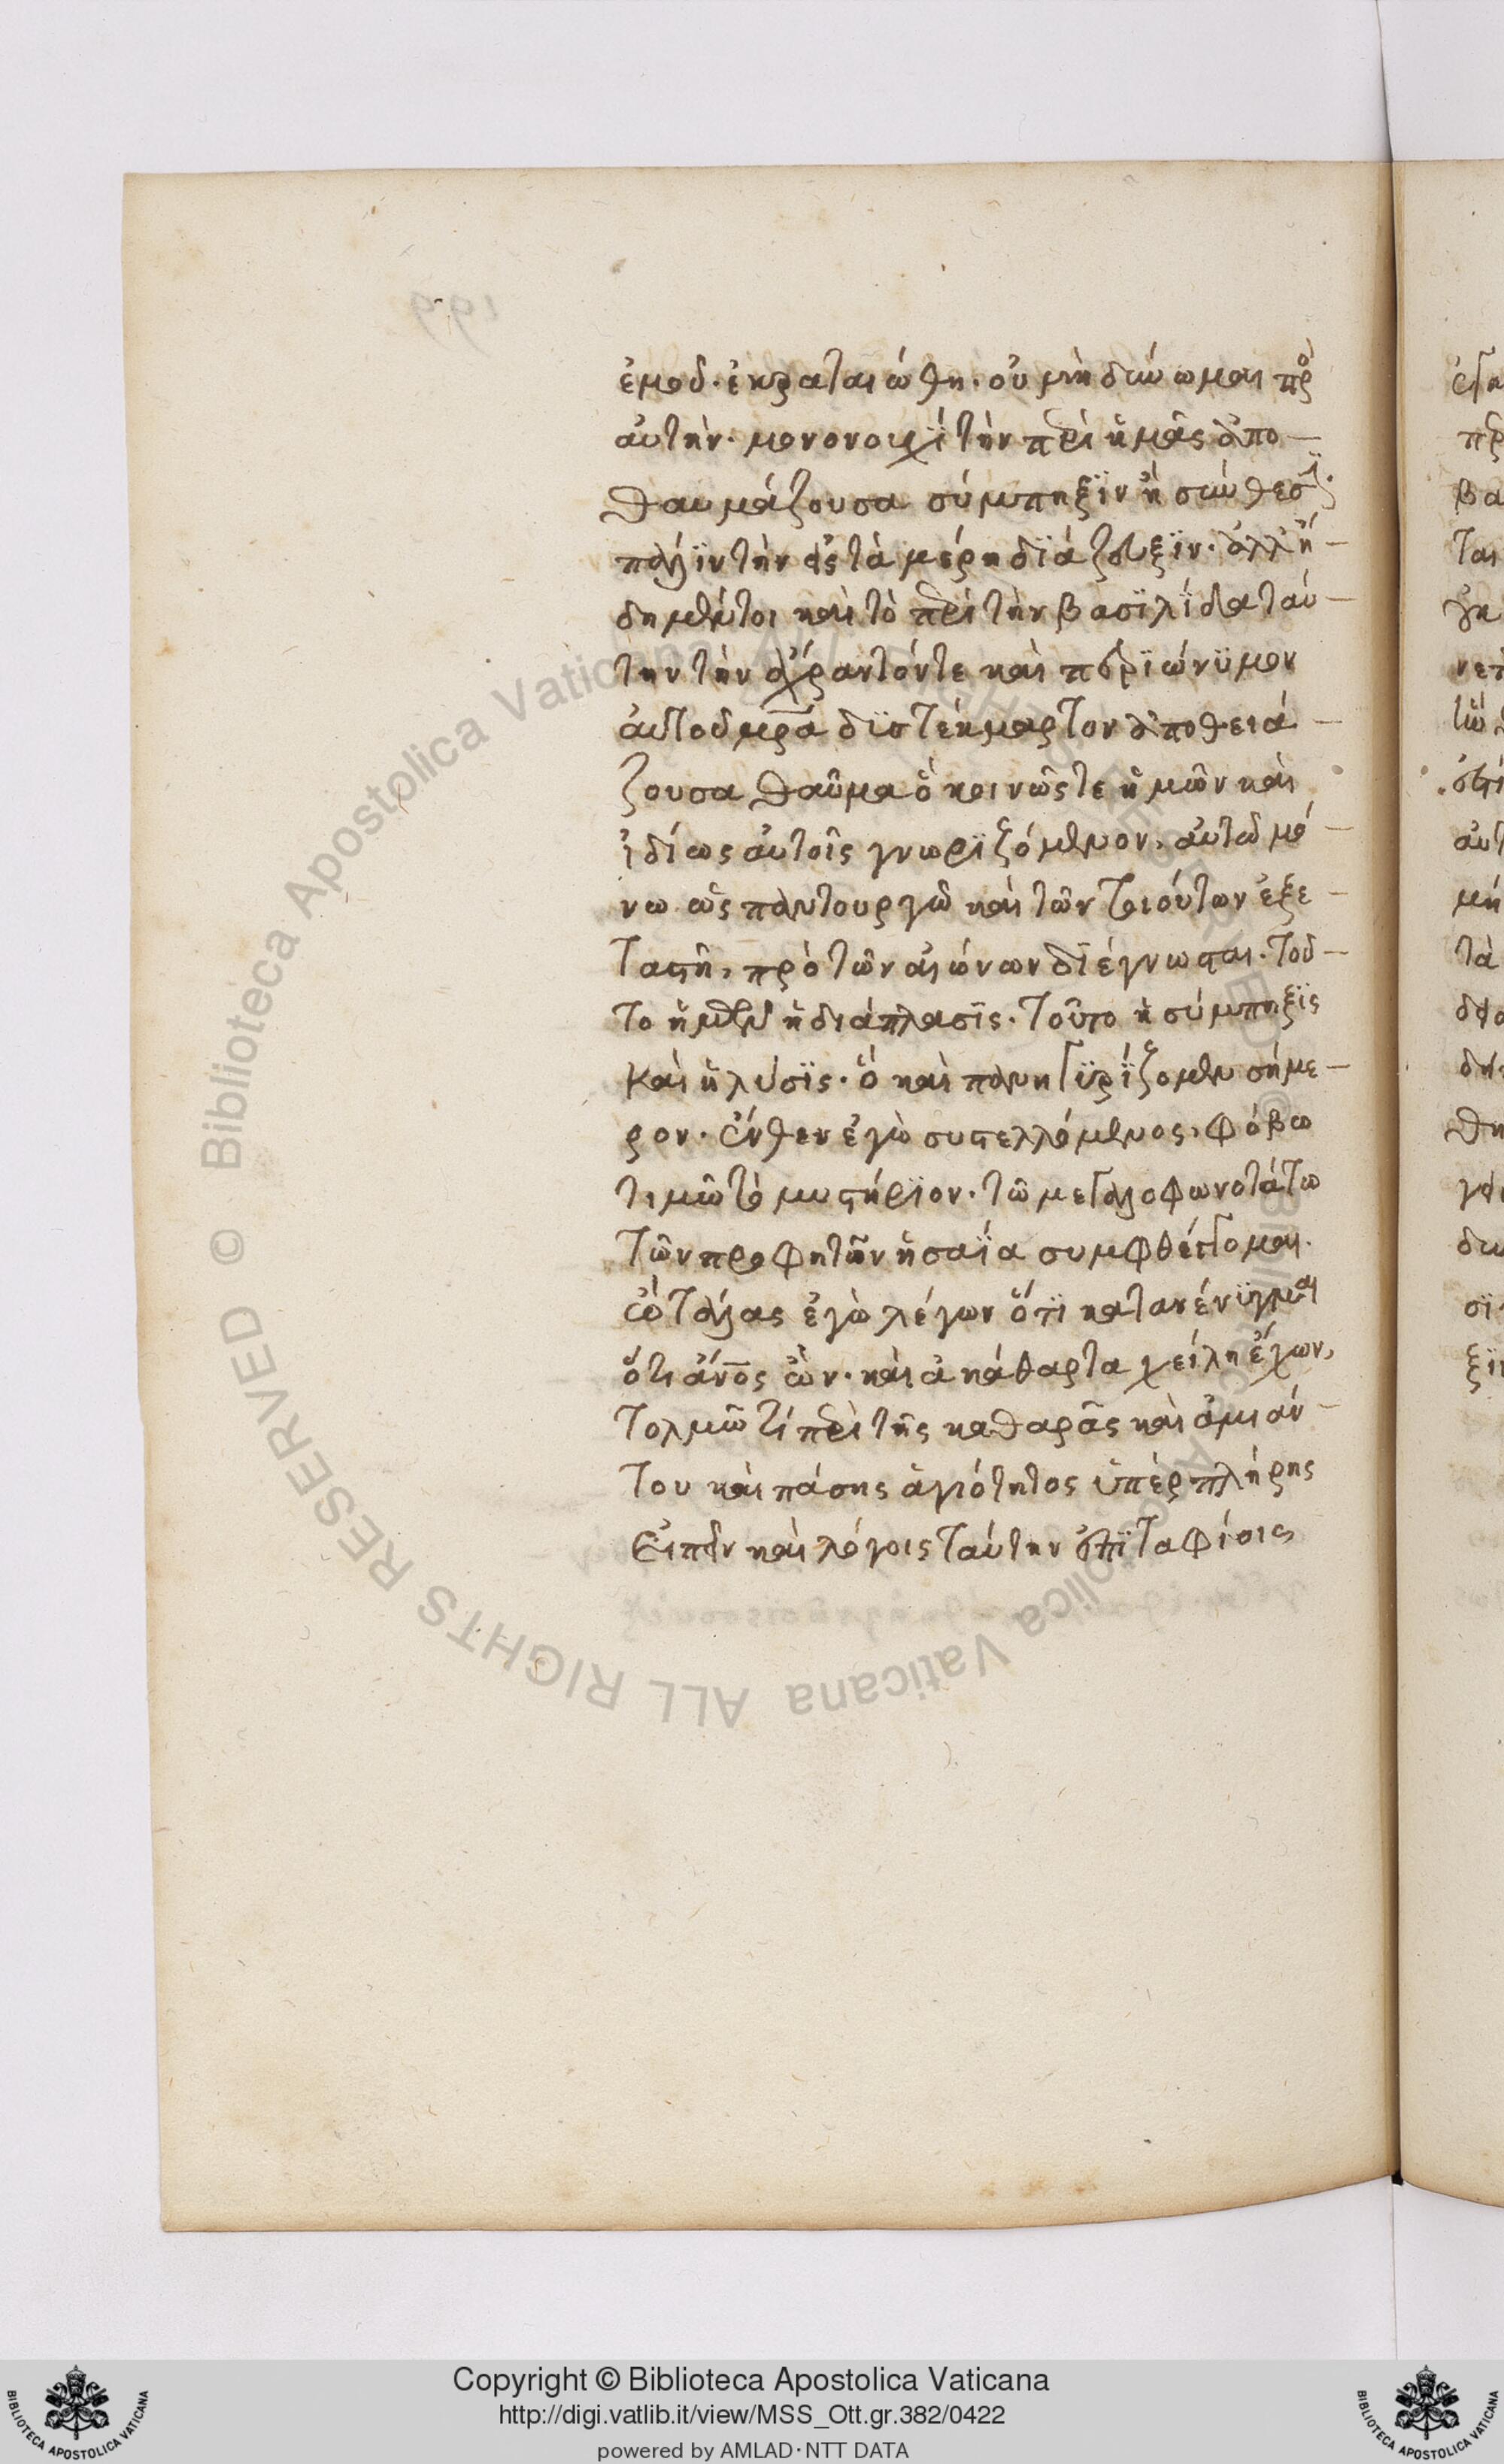 ἐμοῦ. ἐκραταιώθη. οὐ μὴ δύνωμαι πρ
αὐτήν. μονονουχϊ τὴν περὶ ἡμᾶς ἀπο
θαυμάζουσα σύμπηξϊν ἢ σύνθεσϊν.
πάλϊν τὴν εἰς τὰ μέρη δϊάζευξϊν. ἀλλ' ἤ
δη μέντοι καὶ τὸ περὶ τὴν βασϊλίδα ταύ
την τὴν ἄχραντόν τε καὶ περϊώνϋμον
αὐτοῦ μρα δϋστέκμαρτον ἀποθειά
ζουσα θαῦμα ὃ κοινῶς τε ἡμῶν καὶ
ἰδίως αὐτοῖς γνωρϊζόμενον, αὐτῶ μό
νω ὡς παντουργῶ καὶ τῶν τοιούτων ἐξε
ταστῆ, πρὸ τῶν αἰώνων δϊέγνωσται. τοῦ
το ἡμῶν ἡ διάπλασϊς. τοῦτο ἡ σύμπηξϊς
καὶ ἡ λύσϊς. ὃ καὶ πανηγϋρΐζομεν σήμε
ρον. ἔνθεν ἐγὼ συστελλόμενος, φόβω
τιμῶ τὸ μυστήρϊον. τῶ μεγαλοφωνοτάτω
τῶν προφητῶν ἡσαΐα συμφθέγγομαι.
ὦ τάλας ἐγὼ λέγων ὅτϊ κατανένϋγμαι
ὅτι ἄνος ὢν. καὶ ἀκάθαρτα χείλη ἔχων,
τολμῶ τί περὶ τῆς καθαρᾶς καὶ ἀμιάν
του καὶ πάσης ἁγιότητος ὑπὲρπλήρης
εἰπεῖν καὶ λόγοις ταύτην ἐπϊταφίοις
Copyright © Biblioteca Apostolica Vaticana
http://digi.vatlib.it/view/MSS_Ott.gr.382/0422
powered by AMLAD·NTT DATA